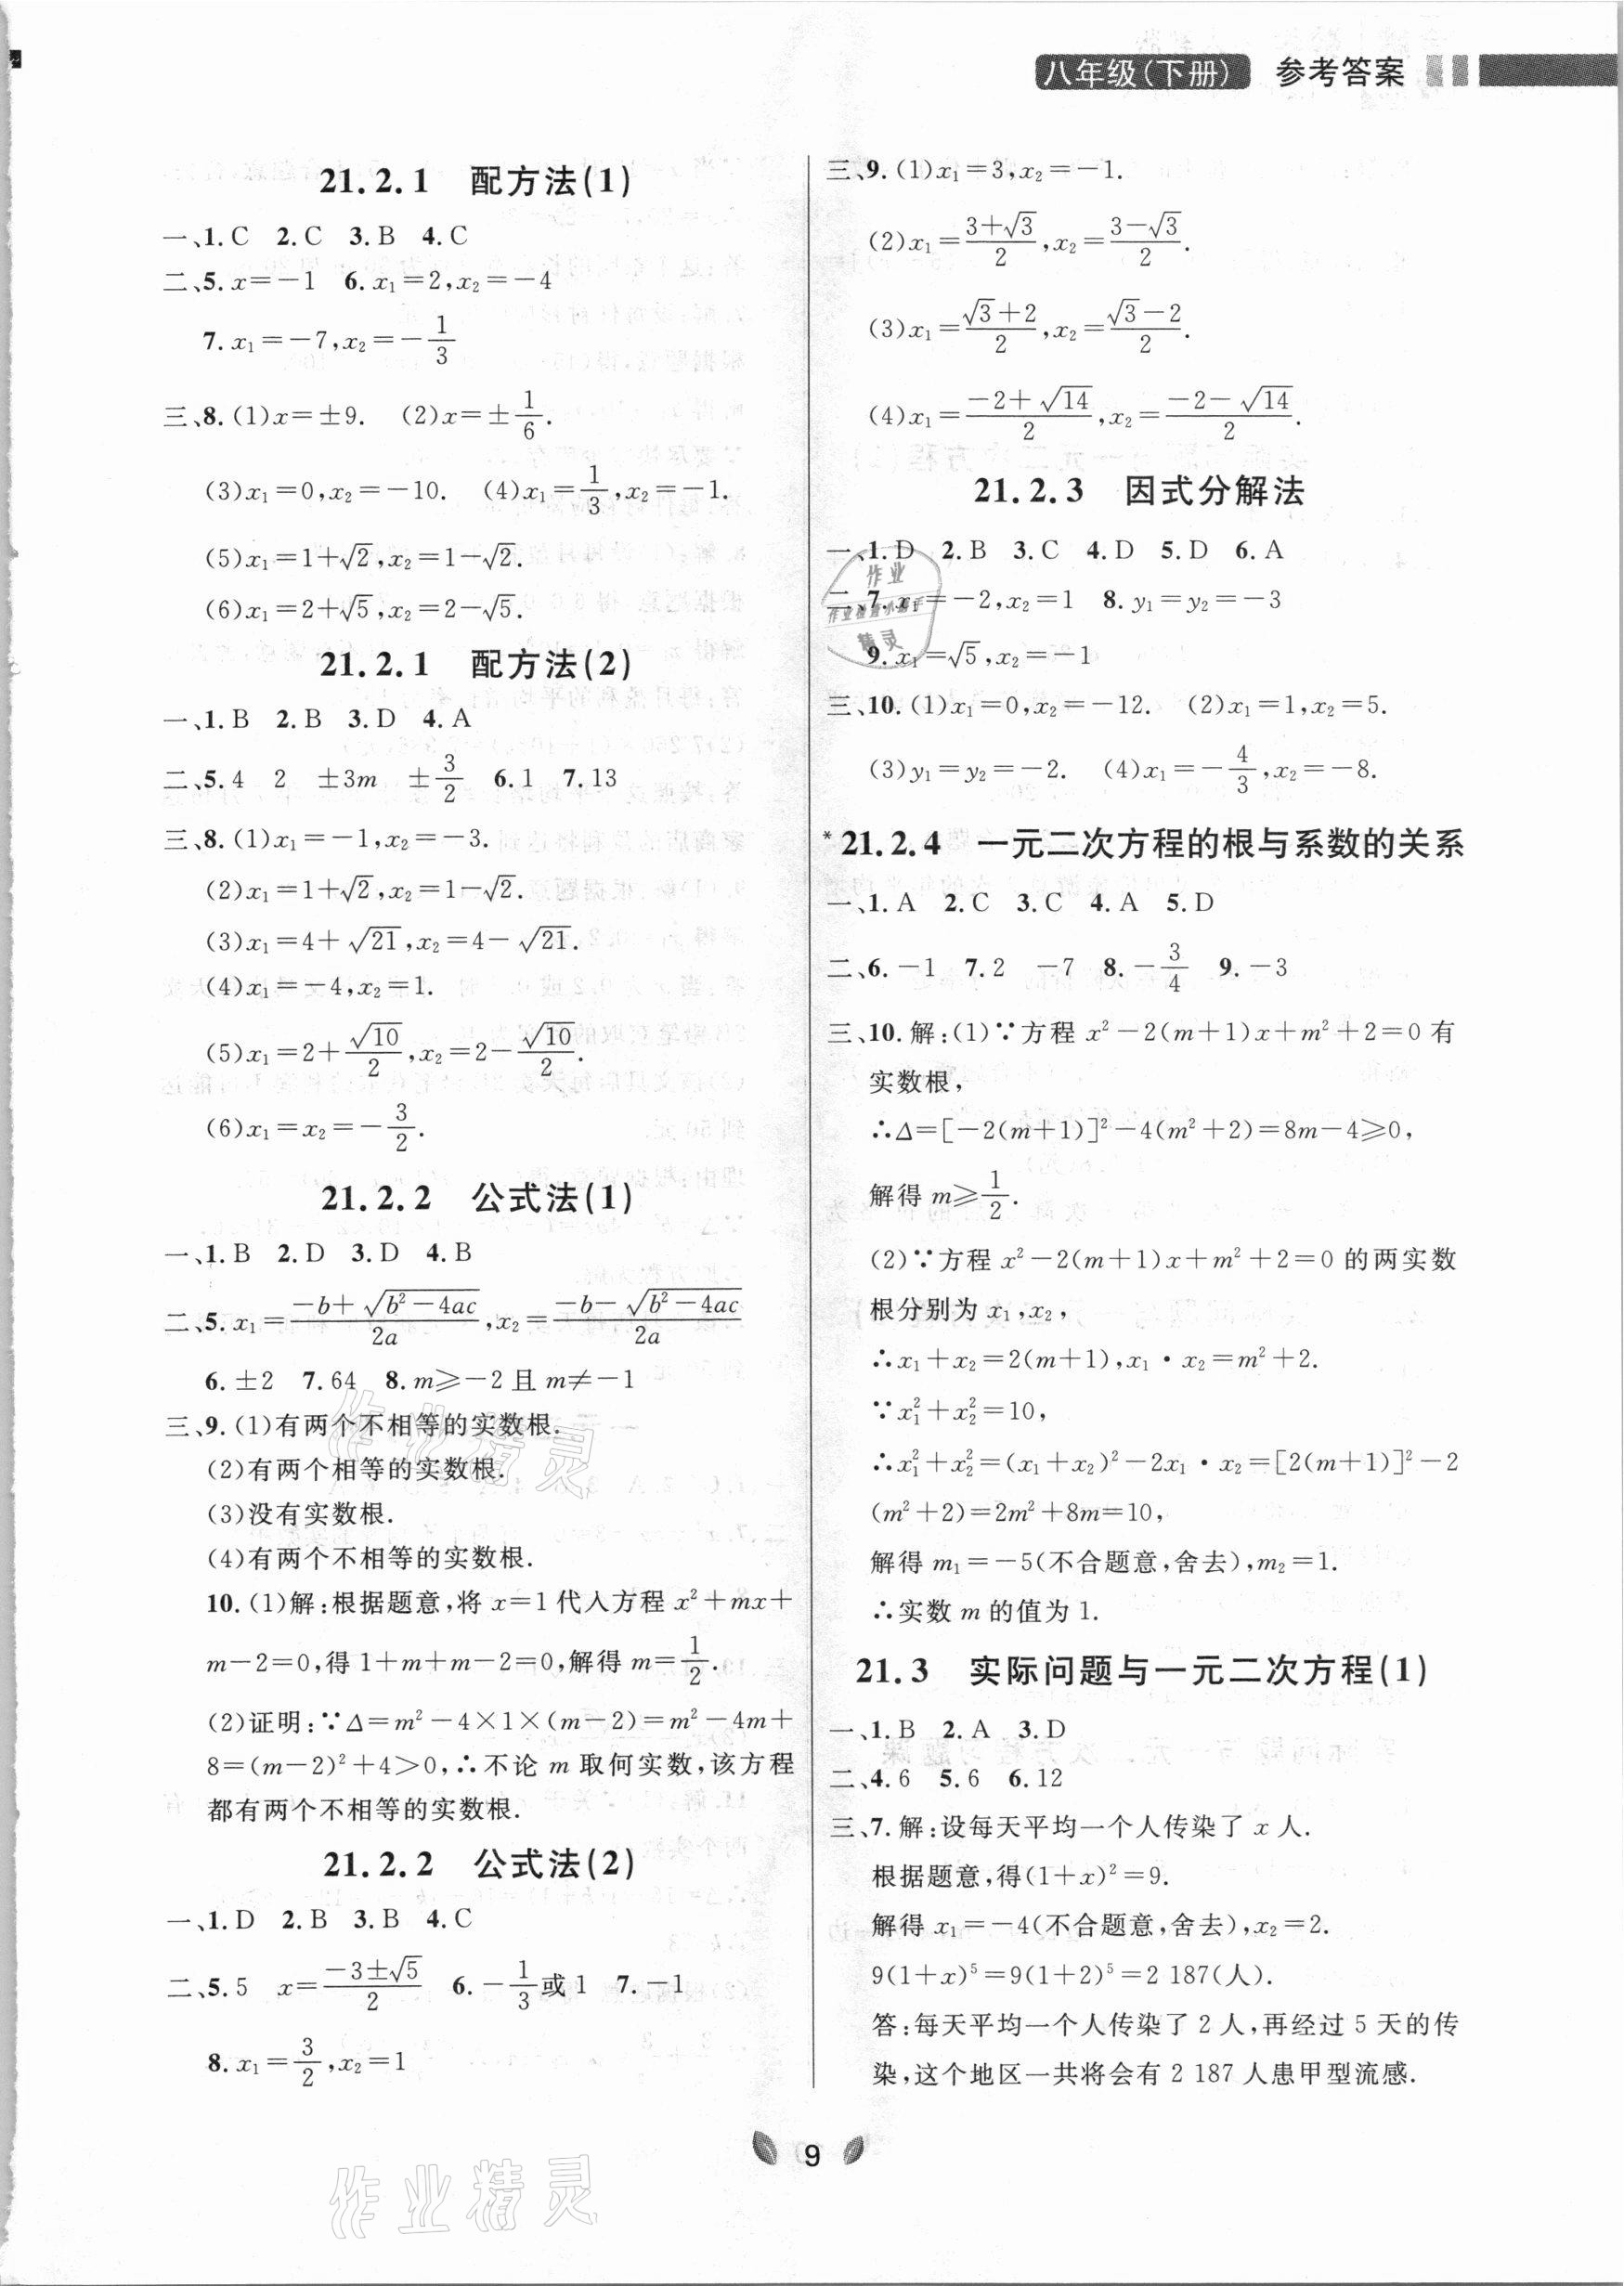 八年级(下册) 参考答案
21.2.1 配方法(1)
一、1.C 2.C 3.B 4.C
二、5.x=-1 6.x₁=2,x₂=-4
7.x₁=-7,x₂=-1/3
三、8.(1)x=±9. (2)x=±1/6.
(3)x₁=0,x₂=-10. (4)x₁=1/3,x₂=-1.
(5)x₁=1+√2,x₂=1-√2.
(6)x₁=2+√5,x₂=2-√5.
21.2.1 配方法(2)
一、1.B 2.B 3.D 4.A
二、5.4 2 ±3m ±3/2 6.1 7.13
三、8.(1)x₁=-1,x₂=-3.
(2)x₁=1+√2,x₂=1-√2.
(3)x₁=4+√21,x₂=4-√21.
(4)x₁=-4,x₂=1.
(5)x₁=2+√10/2,x₂=2-√10/2.
(6)x₁=x₂=-3/2.
21.2.2 公式法(1)
一、1.B 2.D 3.D 4.B
二、5.x₁=(-b+√(b²-4ac))/2a,x₂=(-b-√(b²-4ac))/2a
6.±2 7.64 8.m≥-2且m≠-1
三、9.(1)有两个不相等的实数根.
(2)有两个相等的实数根.
(3)没有实数根.
(4)有两个不相等的实数根.
10.(1)解:根据题意,将x=1代入方程x²+mx+
m-2=0,得1+m+m-2=0,解得m=1/2.
(2)证明:∵Δ=m²-4×1×(m-2)=m²-4m+
8=(m-2)²+4>0,∴不论m取何实数,该方程
都有两个不相等的实数根.
21.2.2 公式法(2)
一、1.D 2.B 3.B 4.C
二、5.5 x=(-3±√5)/2 6.-1/3或1 7.-1
8.x₁=3/2,x₂=1
三、9.(1)x₁=3,x₂=-1.
(2)x₁=(3+√3)/2,x₂=(3-√3)/2.
(3)x₁=(√3+2)/2,x₂=(√3-2)/2.
(4)x₁=(-2+√14)/2,x₂=(-2-√14)/2.
21.2.3 因式分解法
一、1.D 2.B 3.C 4.D 5.D 6.A
二、7.x₁=-2,x₂=1 8.y₁=y₂=-3
9.x₁=√5,x₂=-1
三、10.(1)x₁=0,x₂=-12. (2)x₁=1,x₂=5.
(3)y₁=y₂=-2. (4)x₁=-4/3,x₂=-8.
*21.2.4 一元二次方程的根与系数的关系
一、1.A 2.C 3.C 4.A 5.D
二、6.-1 7.2 -7 8.-3/4 9.-3
三、10.解:(1)∵方程x²-2(m+1)x+m²+2=0有
实数根,
∴Δ=[-2(m+1)]²-4(m²+2)=8m-4≥0,
解得m≥1/2.
(2)∵方程x²-2(m+1)x+m²+2=0的两实数
根分别为x₁,x₂,
∴x₁+x₂=2(m+1),x₁·x₂=m²+2.
∵x₁²+x₂²=10,
∴x₁²+x₂²=(x₁+x₂)²-2x₁·x₂=[2(m+1)]²-2
(m²+2)=2m²+8m=10,
解得m₁=-5(不合题意,舍去),m₂=1.
∴实数m的值为1.
21.3 实际问题与一元二次方程(1)
一、1.B 2.A 3.D
二、4.6 5.6 6.12
三、7.解:设每天平均一个人传染了x人.
根据题意,得(1+x)²=9.
解得x₁=-4(不合题意,舍去),x₂=2.
9(1+x)⁵=9(1+2)⁵=2 187(人).
答:每天平均一个人传染了2人,再经过5天的传
染,这个地区一共将会有2 187人患甲型流感.
9
作业精灵
作业精灵
作业
精灵